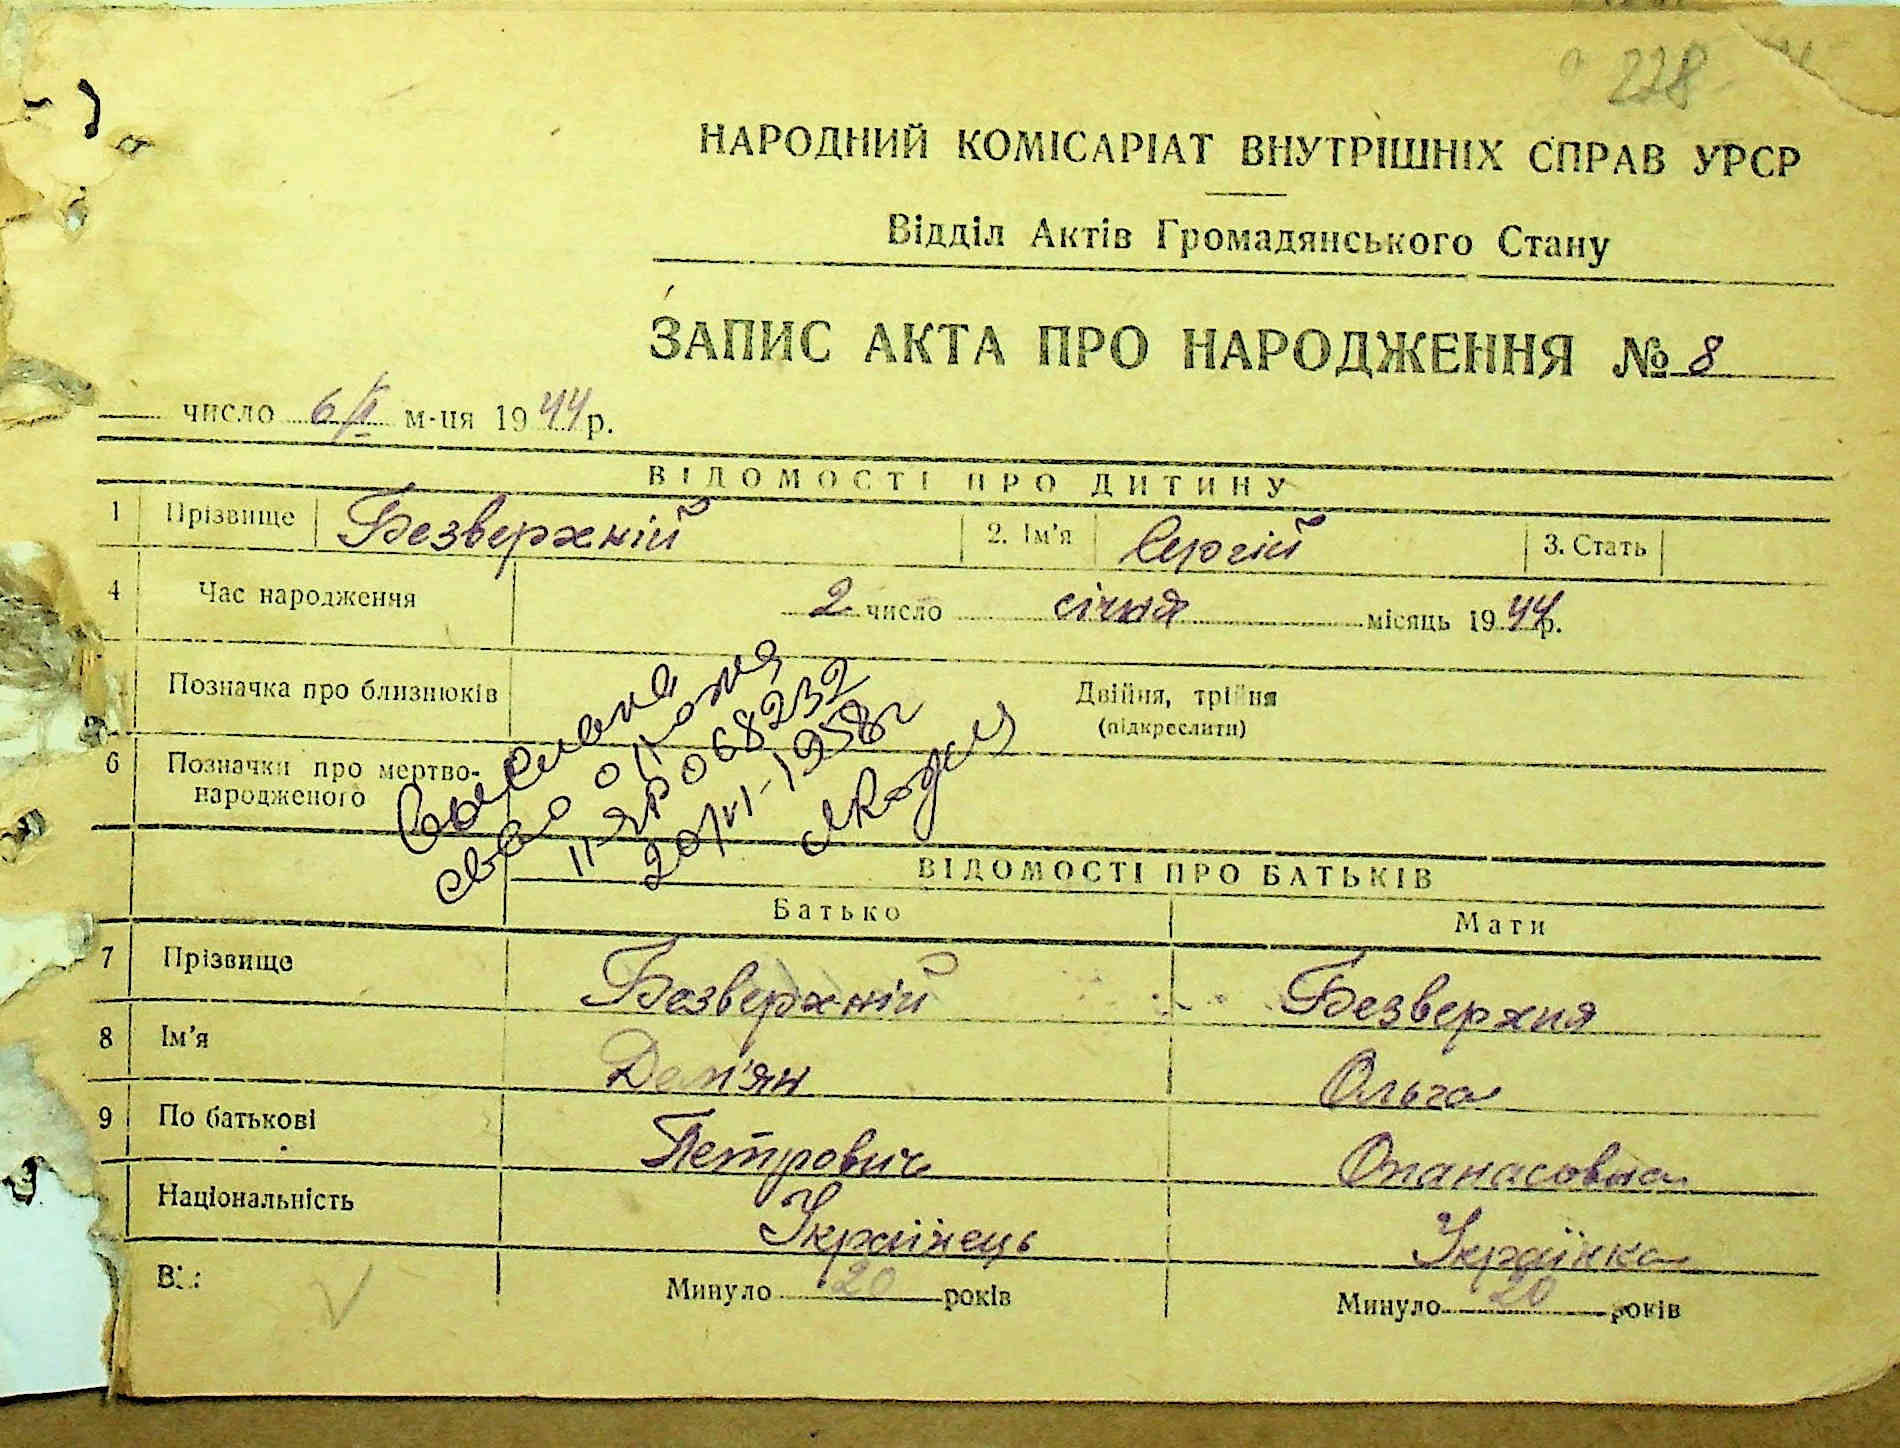 228
НАРОДНИЙ КОМІСАРІАТ ВНУТРІШНІХ СПРАВ УРСР
Відділ Актів Громадянського Стану
ЗАПИС АКТА ПРО НАРОДЖЕННЯ № 8
число 6/II м-ця 1944 р.
ВІДОМОСТІ ПРО ДИТИНУ
1 Прізвище Безверхній 2. Ім'я Сергій 3. Стать
4 Час народження 2 число січня місяць 1944 р.
Позначка про близнюків Двійня, трійня
(підкреслити)
6 Позначки про мертво-
народженого
Выслана
свво о
II-ЯР 068232
20/VI-1958г
ВІДОМОСТІ ПРО БАТЬКІВ
Батько Мати
7 Прізвище Безверхній Безверхня
8 Ім'я Дем'ян Ольга
9 По батькові Петрович Опанасовна
Національність Українець Українка
Минуло 20 років Минуло 20 років